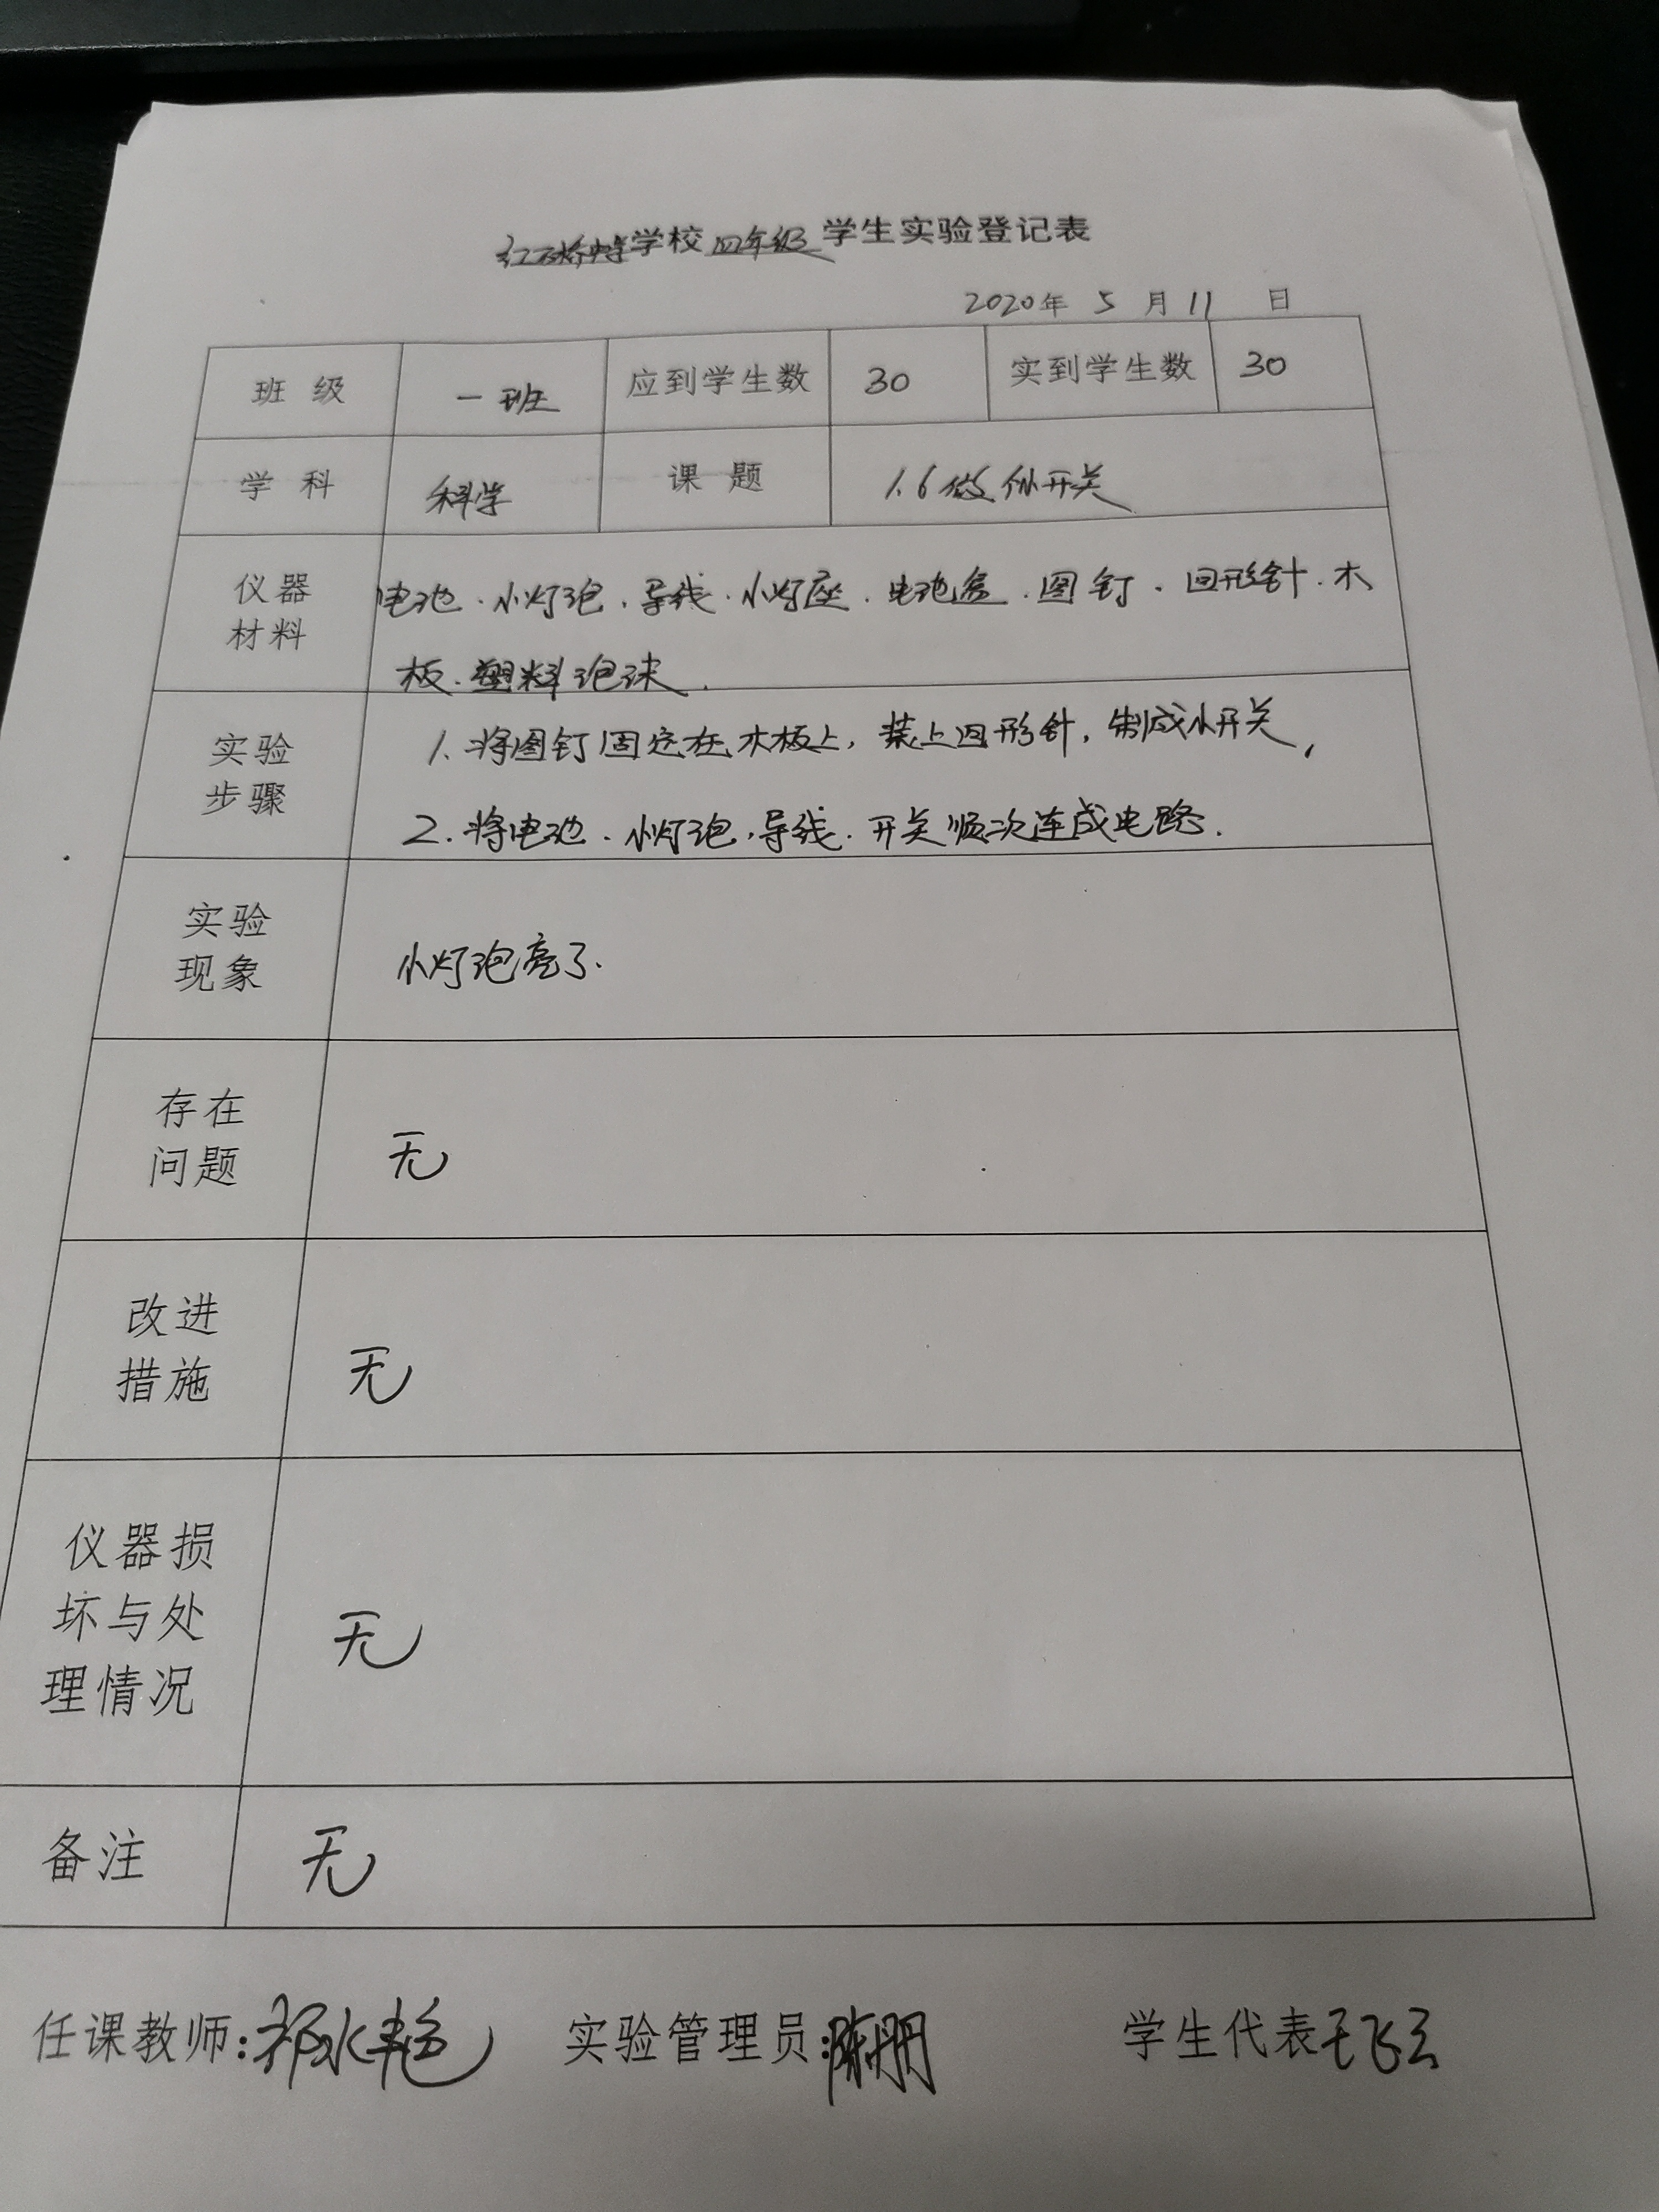 红石桥中学学校四年级学生实验登记表
2020年 5 月 11 日
班 级 一班 应到学生数 30 实到学生数 30
学 科 科学 课 题 1.6做个小开关
仪器
材料
电池、小灯泡、导线、小灯座、电池盒、图钉、回形针、木
板、塑料泡沫.
实验
步骤
1.将图钉固定在木板上,装上回形针,制成小开关,
2.将电池、小灯泡、导线、开关顺次连成电路.
实验
现象
小灯泡亮了.
存在
问题
无
改进
措施
无
仪器损
坏与处
理情况
无
备注 无
任课教师: 实验管理员: 学生代表王飞云